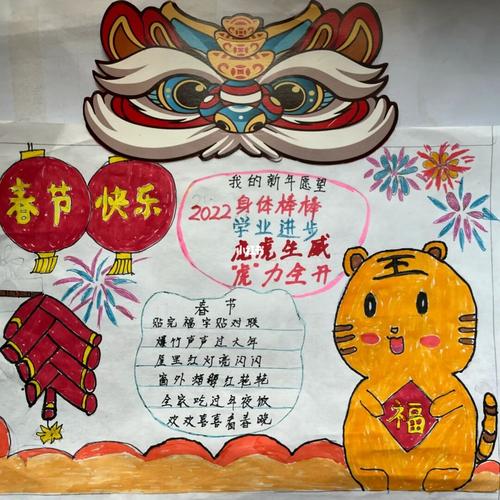 春节 快乐
我的新年愿望
2022身体棒棒
学业进步
虎虎生威
"虎"力全开
小红书
春节
贴完福字贴对联
爆竹声声过大年
屋里红灯亮闪闪
窗外
全家吃过年夜饭
欢欢喜喜看春晚
王
福